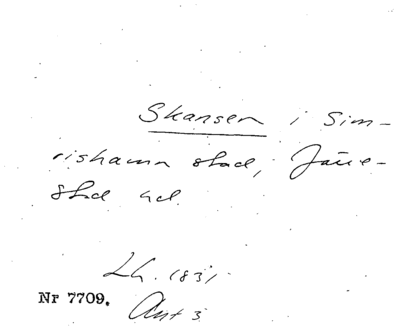 Skansen i Sim-
rishamn stad, Järre-
stad hd.
Lh. 1831.
Nr 7709.
Ant 3